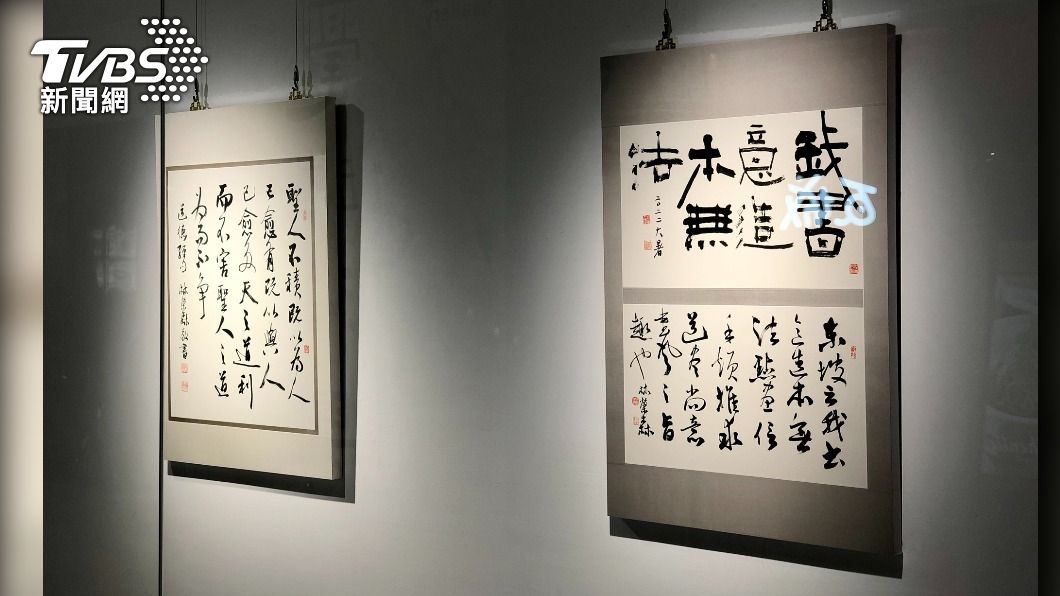 TVBS
新聞網
聖人不積既以為人
己愈有既以與人
己愈多天之道利
而不害聖人之道
为而不争
道德經句 林榮森敬書
我書
意造
本無
法
二〇二二大暑
东坡云我书
意造本無
法點畫信
手煩推求
道盡尚意
書風之旨
趣也 林榮森